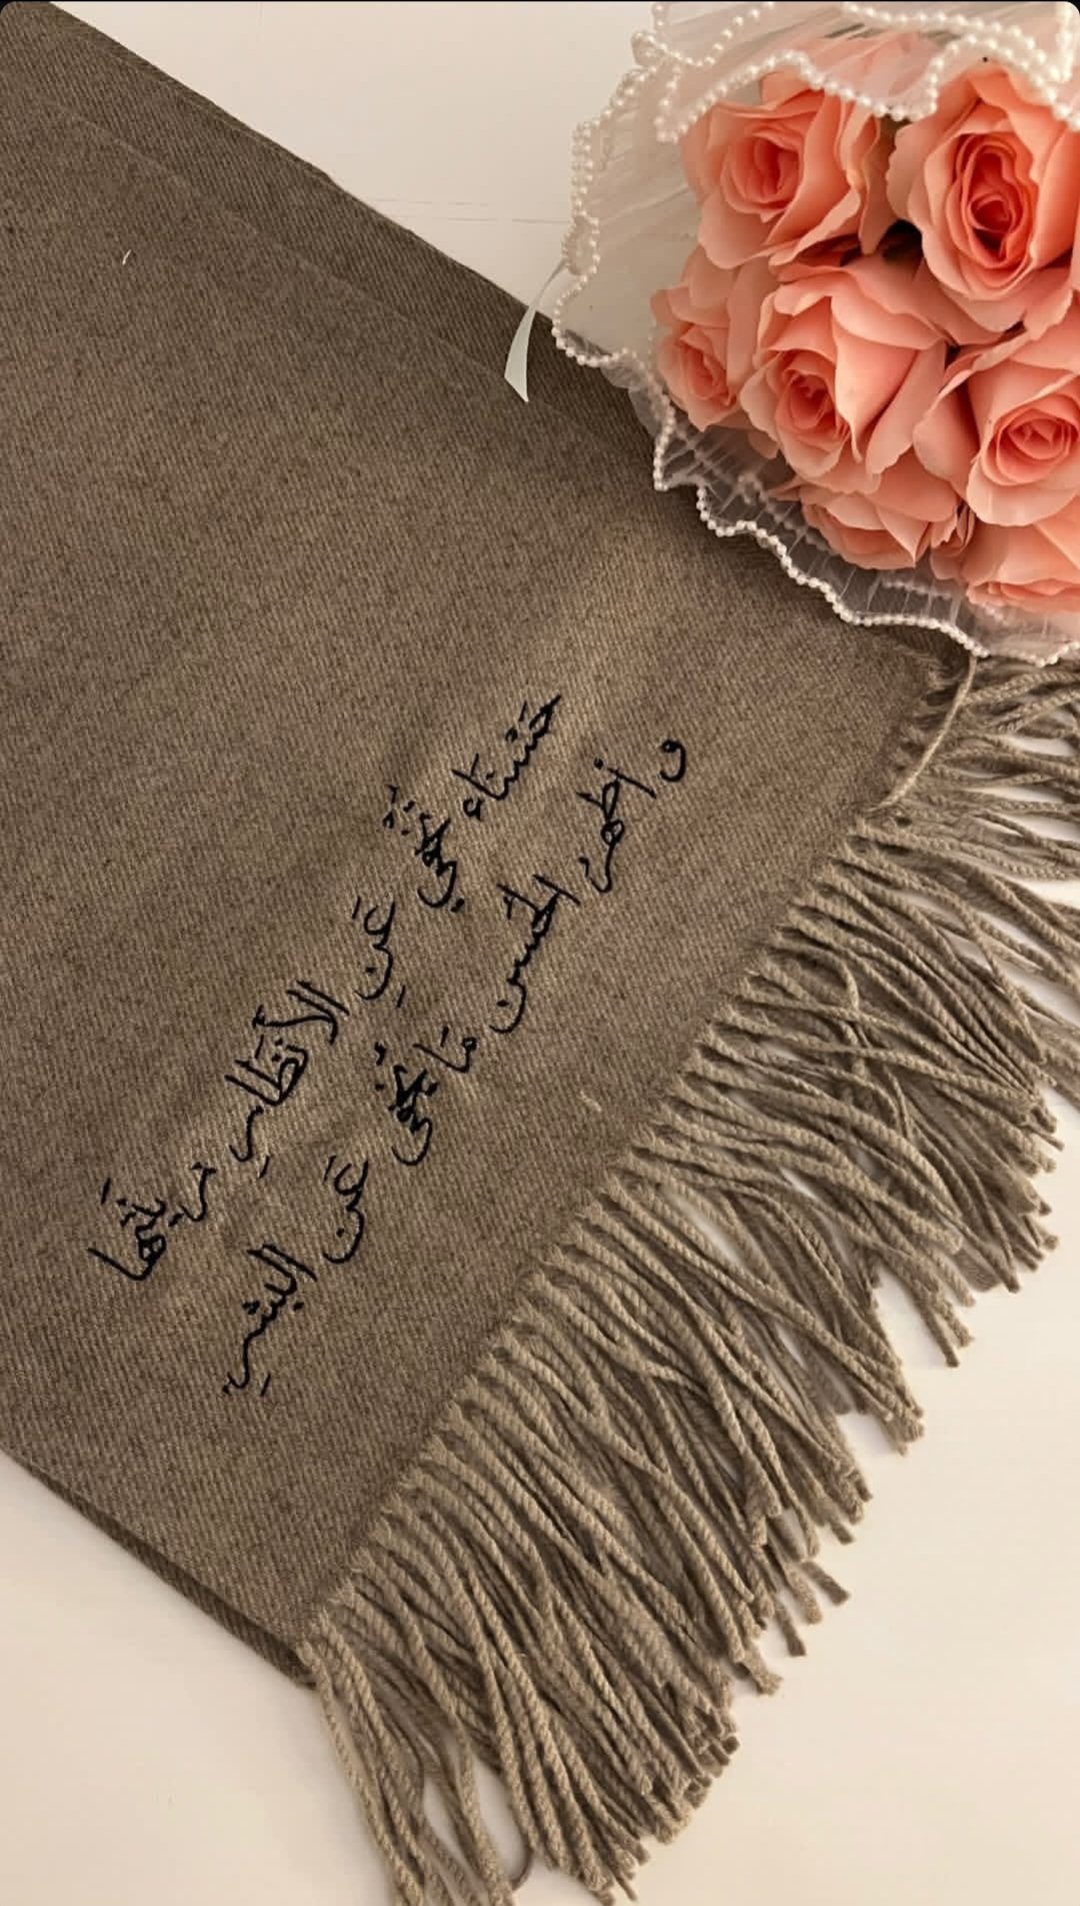 حَسْنَاء تُخْفِي عَنِ الأَنْظَارِ زينَتَها
و أظهرُ الحُسن مَا يُخْفى عَن البشرِ